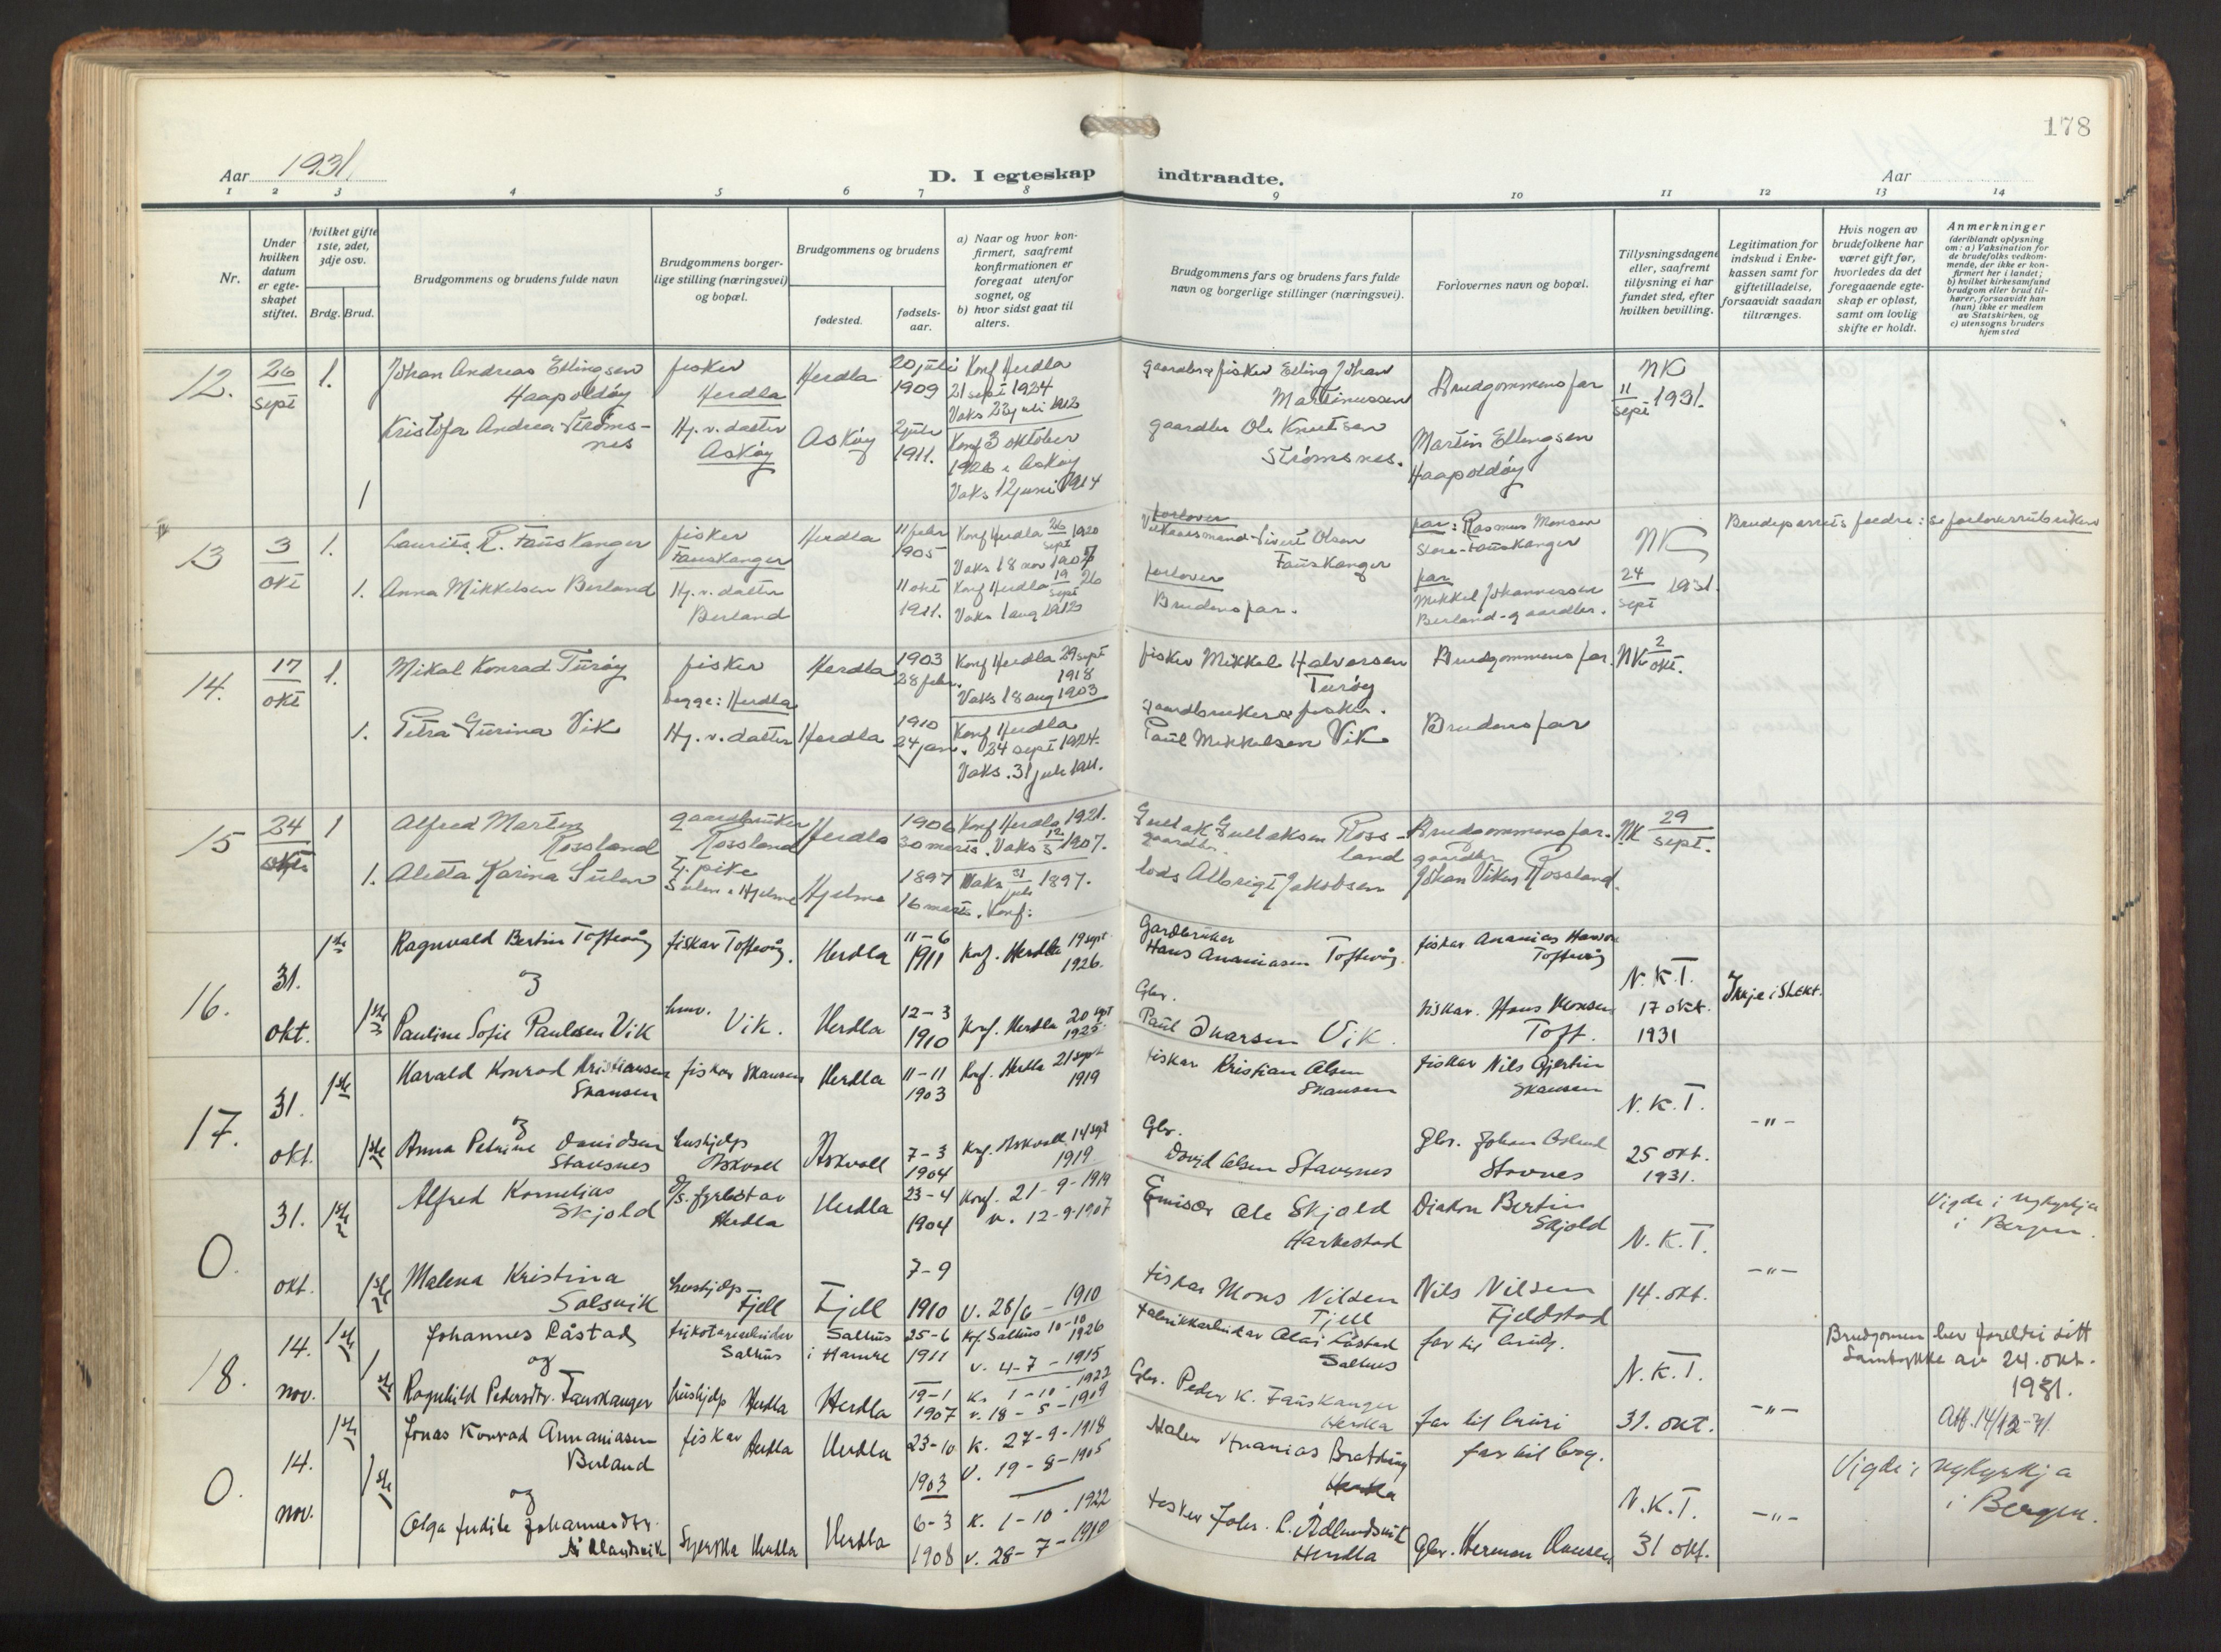 178
Aar 1931
D. I egteskap indtraadte.
Aar
1 2 3 4 5 6 7 8 9 10 11 12 13 14
Nr.
Under hvilken datum er egteskapet stiftet.
Hvilket gifte 1ste, 2det, 3dje osv.
Brdg. Brud.
Brudgommens og brudens fulde navn
Brudgommens borgerlige stilling (næringsvei) og bopæl.
Brudgommens og brudens
fødested.
fødselsaar.
a) Naar og hvor konfirmert, saafremt konfirmationen er foregaat utenfor sognet, og
b) hvor sidst gaat til alters.
Brudgommens fars og brudens fars fulde navn og borgerlige stillinger (næringsvei).
Forlovernes navn og bopæl.
Tillysningsdagene eller, saafremt tillysning ei har fundet sted, efter hvilken bevilling.
Legitimation for indskud i Enkekassen samt for giftetilladelse, forsaavidt saadan tiltrænges.
Hvis nogen av brudefolkene har været gift før, hvorledes da det foregaaende egteskap er opløst, samt om lovlig skifte er holdt.
Anmerkninger
(deriblandt oplysning om: a) Vaksination for de brudefolks vedkommende, der ikke er konfirmert her i landet; b) hvilket kirkesamfund brudgom eller brud tilhører, forsaavidt han (hun) ikke er medlem av Statskirken, og c) utensogns bruders hjemsted
12. 26 sept 1. Johan Andreas Ellingsen Haapoldøy fisker Herdla Herdla 20 juli 1909 Konf Herdla 21 sept 1924 Vaks 23 juli 1912 gaardbr & fisker Elling Johan Martinussen Brudgommens far NK 11 sept 1931.
1 Kristofa Andrea Strømsnes Hj. v. datter Askøy Askøy 2 juli 1911. Konf 3 oktober 1926 i Askøy Vaks 12 juni 1914 gaardbr Ole Knutsen Strømsnes. Martin Ellingsen Haapoldøy
13 3 okt 1. Laurits R. Fauskanger fisker Fauskanger Herdla 11 febr 1905 Konf Herdla 26 sept 1920 forlover Sivert Olsen Fauskanger far: Rasmus Monsen Store-Fauskanger NK 24 sept 1931. Brudeparrets fedre: se forloverrubrikken
1. Anna Mikkelsen Berland Hj. v. datter Berland 11 okt 1911. Konf Herdla 19 sept 26 Vaks 1 aug 1912 forlover Brudens far. far Mikkel Johannessen Berland - gaardbr.
14. 17 okt 1. Mikal Konrad Turøy fisker begge: Herdla Herdla 1903 28 febr. Konf Herdla 29 sept 1918 Vaks 18 aug 1903 fisker Mikkel Halvorsen Turøy Brudgommens far. NK 2 okt.
1. Petra Gurina Vik Hj. v. datter Herdla 1910 24 jan. Konf Herdla 24 sept 1924. Vaks. 31 juli 1911. gaardbruker & fisker. Paul Mikkelsen Vik Brudens far
15 24 okt 1 Alfred Martin Rossland gaardbruker Rossland Herdla 1906 30 marts. Konf Herdla 1921. Vaks 12/5 1907. Gullak Gullaksen Rossland gaardbr. Brudgommens far. NK 29 sept.
1. Aletta Karina Sulen Hjelme 1897 16 marts. Vaks 31 juli 1897. Konf: lods Albrigt Jakobsen gaardbr Johan Rossland.
16. 31. okt. 1ste Ragnvald Bertin Toftevåg fiskar Toftevåg. Herdla 11-6 1911 Konf. Herdla 19 sept 1926. Gardbruker Hans Ananiasen Toftevåg. fiskar Ananias Hanson Toftevåg N.K.T. 17 okt. 1931 Ikkje i slekt.
og
1ste Pauline Sofie Paulsen Vik husv. Vik. Herdla 12-3 1910 Konf. Herdla 20 sept 1925. Gbr. Paul Ivarsen Vik. fiskar. Hans Monsen Toft.
17. 31. okt. 1ste Harald Konrad Kristiansen Skansen fiskar Skansen Herdla 11-11 1903 Konf. Herdla 21 sept 1919 fiskar Kristian Olsen Skansen fiskar Nils Gjertin Skansen N.K.T. 25 okt. 1931. -"-
og
1ste Anna Petrine Davidsen Stavsnes hushjelp Askvoll Askvoll 7-3 1904 Konf. Askvoll 14 sept 1919 Gbr. David Olsen Stavsnes Gbr. Johan Stavnes
0. 31. okt. 1ste Alfred Kornelius Skjold Herdla Herdla 23-4 1904 Konf. 21-9-1919 v. 12-9-1907 Emisær Ole Skjold Harkestad Diakon Bertin Skjold N.K.T. 14. okt. -"- Vigde i nykyrkja i Bergen.
1ste Malena Kristina Solsvik hushjelp Fjell Fjell 7-9 1910 v. 28/6 - 1910 fiskar Mons Nilsen Fjell Nils Nilsen Fjeldstad
18. 14. nov. 1ste Johannes Låstad trikotarbeider Salhus Salhus i Hamre 25-6 1911 Kf. Salhus 10-10 1926 v. 4-7-1915 fabrikkarbeidar Olai Låstad Salhus far til brudg. N.K.T. 31. okt. -"- Brudgomen hev foreldri sitt samtykke av 24. okt. 1931.
og
1ste Ragnhild Pedersdtr. Fauskanger hushjelp Herdla Herdla 19-1 1907 K. 1-10-1922 v. 18-5-1909 Gbr. Peder K. Fauskanger Herdla far til bruri Att. 14/12-31.
0. 14. nov. 1ste Jonas Konrad Annaniasen Berland fiskar Herdla Herdla 23-10 1903 K. 27-9-1918 v. 19-8-1905 Maler Ananias far til brg. N.K.T. 31 okt. -"- Vigde i nykyrkja i Bergen.
og
1ste Olga Judite Johannesdtr. Ådlandsvik Syerska Herdla Herdla 6-3 1908 K. 1-10-1922 v. 28-7-1910 fisker Johs. L. Ådlandsvik Herdla Gbr. Herman Hansen